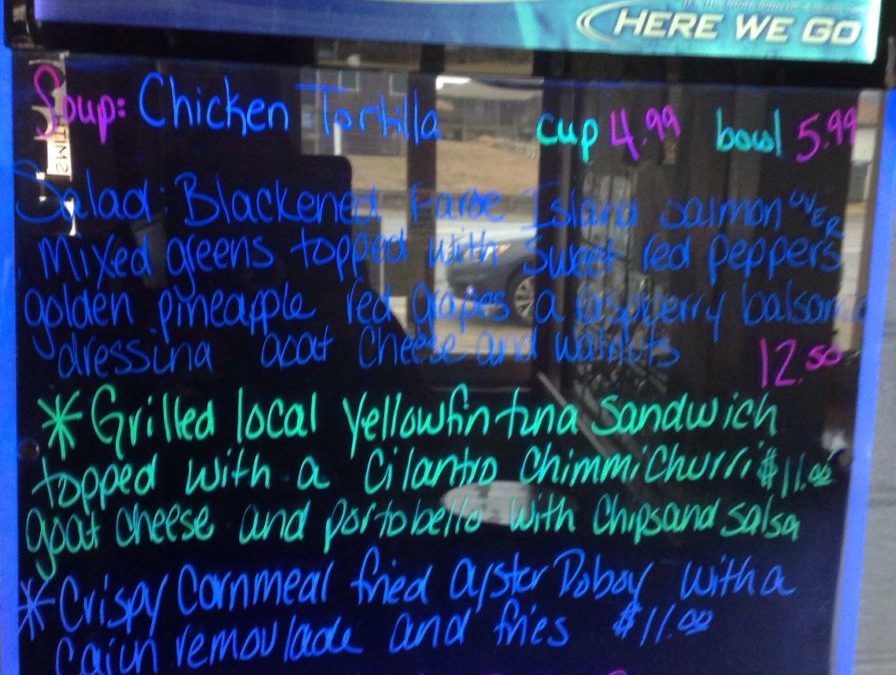 HERE WE GO
Soup: Chicken Tortilla cup 4.99 bowl 5.99
Salad: Blackened Faroe Island salmon OVER
mixed greens topped with sweet red peppers
golden pineapple red grapes a raspberry balsamic
dressing goat cheese and walnuts 12.50
*Grilled local yellowfin tuna sandwich
topped with a Cilantro Chimmichurri $11.00
goat cheese and portobello with chips and salsa
*Crispy Cornmeal fried oyster Poboy with a
cajun remoulade and fries $11.00